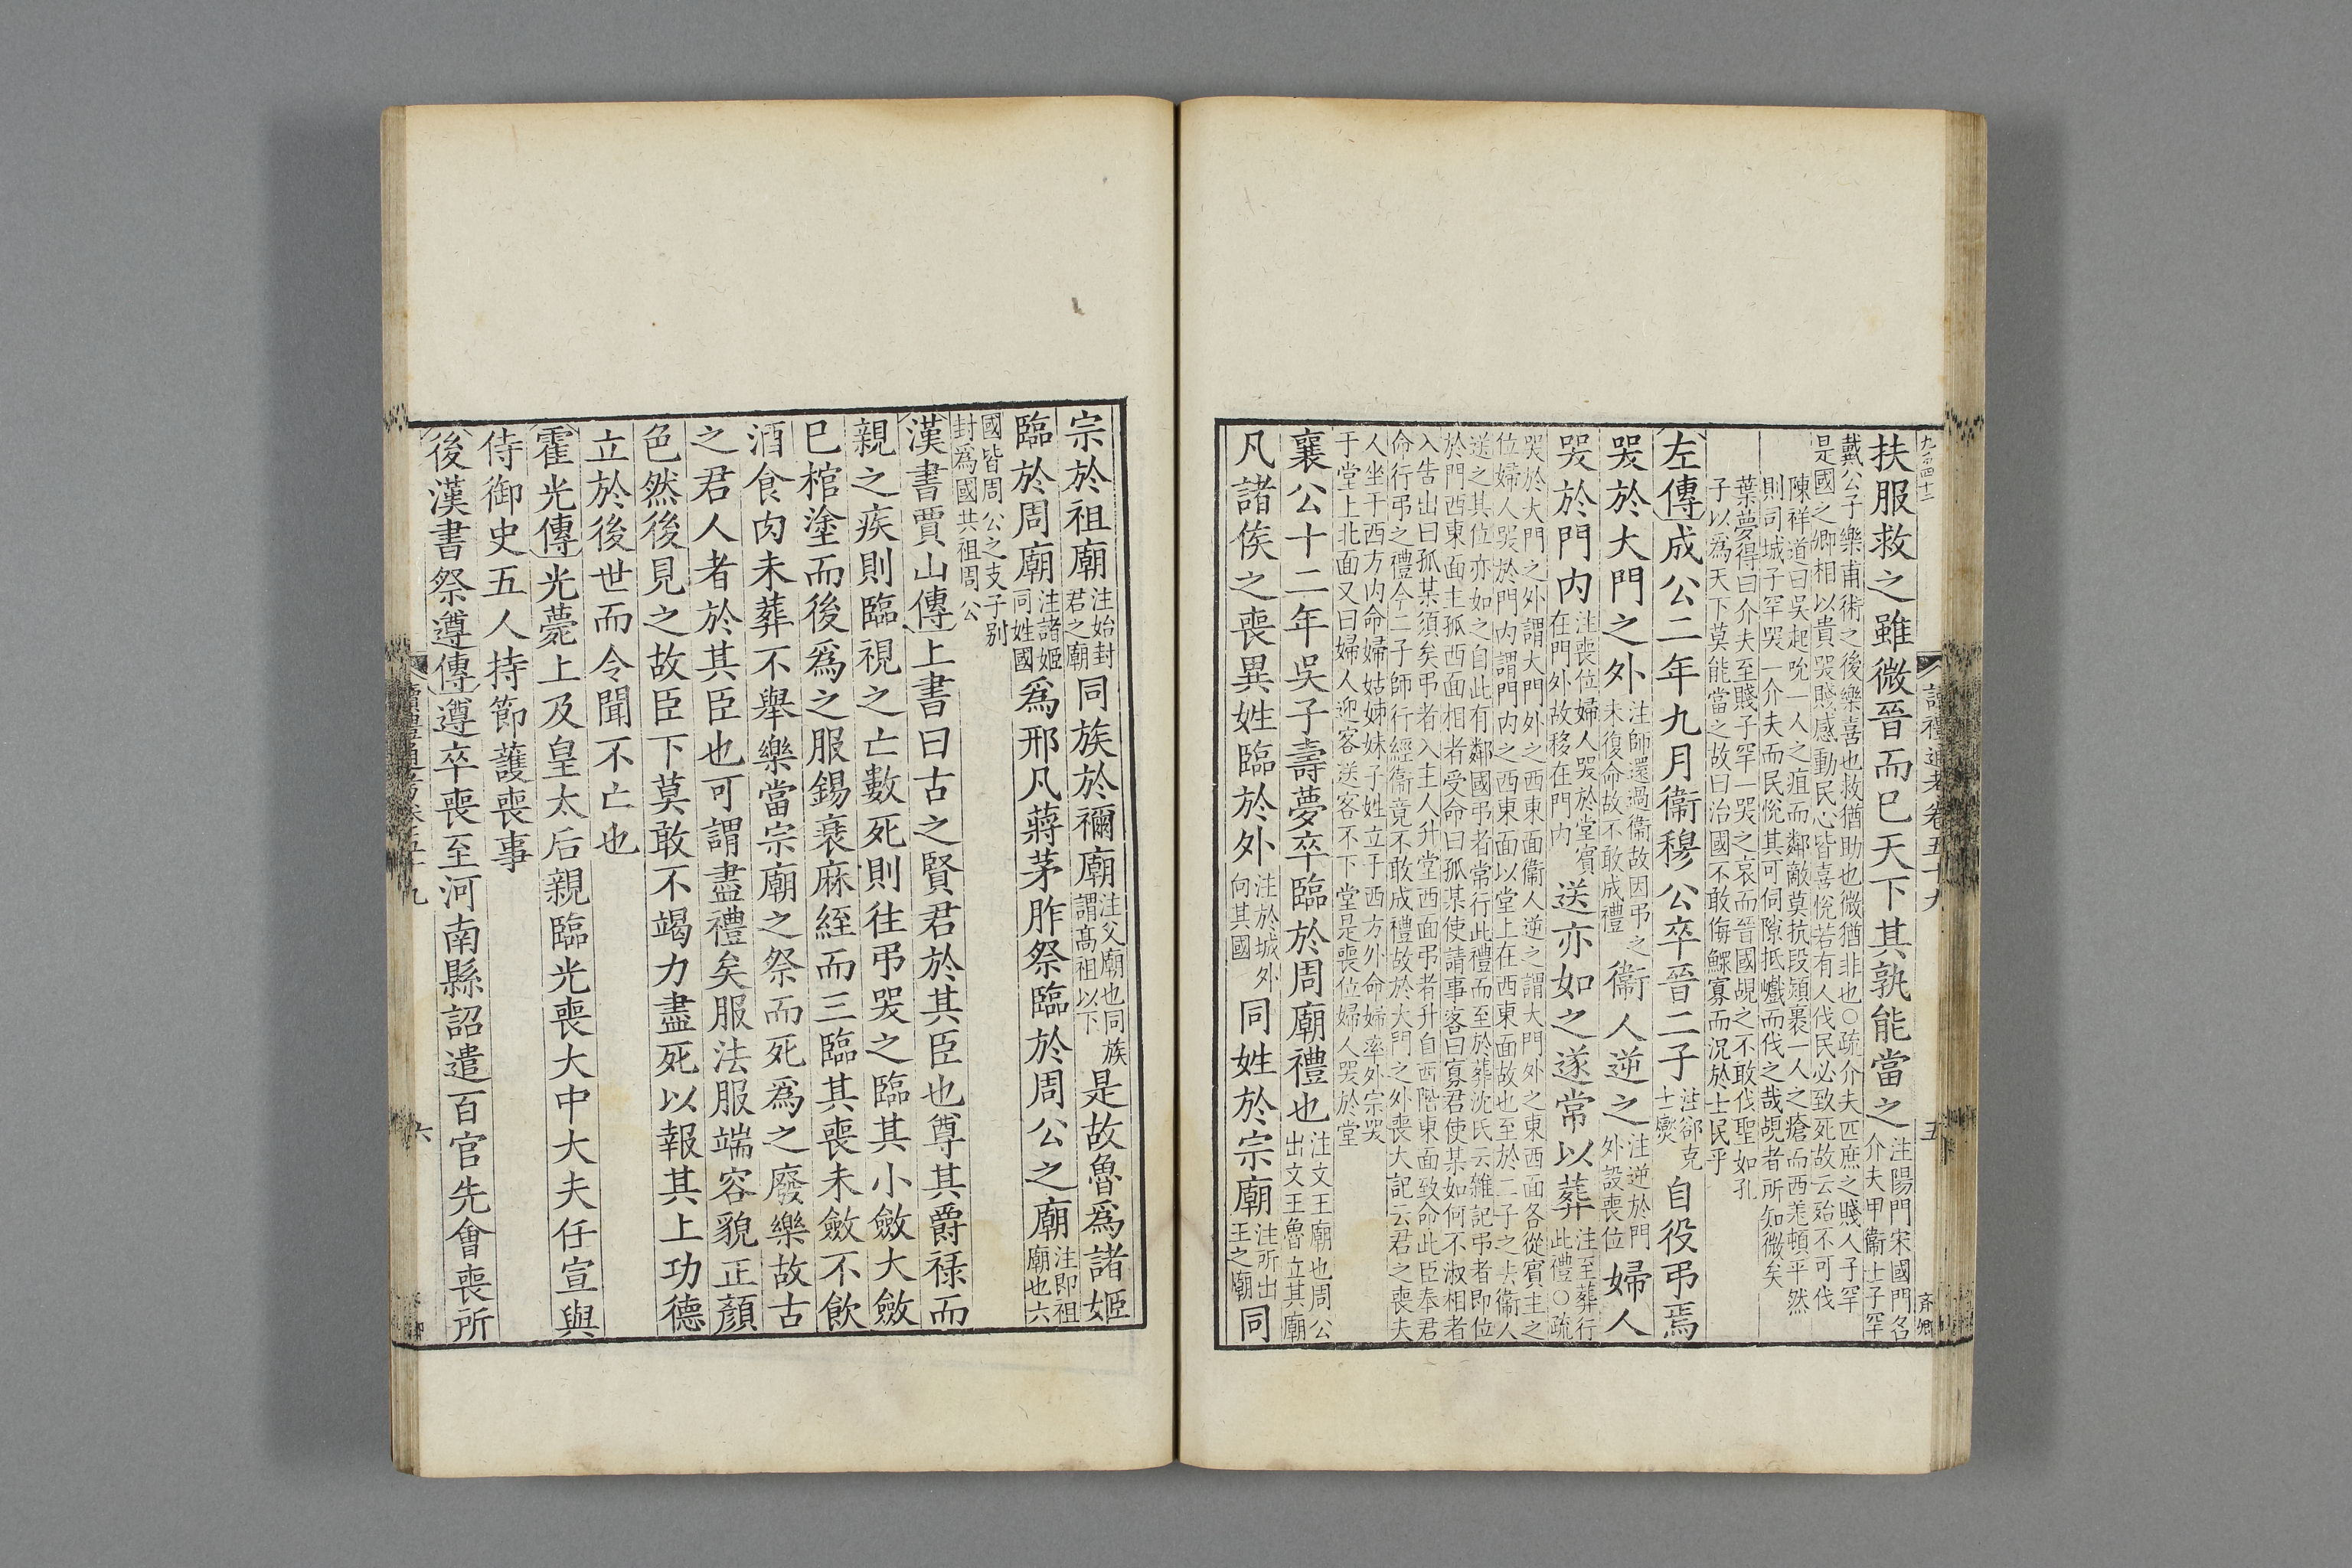 九百四十二 讀禮通考卷五十九 五 斉卿
扶服救之雖微晉而巳天下其孰能當之注陽門宋國門名介夫甲衞士子罕
戴公子樂甫術之後樂喜也救猶助也微猶非也○疏介夫匹庶之賤人子罕
是國之卿相以貴哭賤感動民心皆喜悅若有人伐民必致死故云殆不可伐
陳祥道曰吳起吮一人之疽而鄰敵莫抗段熲裹一人之瘡而西羌頓平然
則司城子罕哭一介夫而民悅其可伺隙抵巇而伐之哉覘者所知微矣
葉夢得曰介夫至賤子罕一哭之哀而晉國覘之不敢伐聖如孔
子以為天下莫能當之故曰治國不敢侮鰥寡而況於士民乎
左傳成公二年九月衞穆公卒晉二子注郤克士爕自役弔焉
哭於大門之外注師還過衞故因弔之未復命故不敢成禮衞人逆之注逆於門外設喪位婦人
哭於門内注喪位婦人哭於堂賔在門外故移在門内送亦如之遂常以葬注至葬行此禮○疏
哭於大門之外謂大門外之西東面衞人逆之謂大門外之東西面各從賔主之
位婦人哭於門内謂門内之西東面以堂上在西東面故也至於二子之去衞人
送之其位亦如之自此有鄰國弔者常行此禮而至於葬沈氏云雜記弔者即位
於門西東面主孤西面相者受命曰孤某使請事客曰寡君使某如何不淑相者
入告出曰孤某須矣弔者入主人升堂西面弔者升自西階東面致命此臣奉君
命行弔之禮今二子師行經衞竟不敢成禮故於大門之外喪大記云君之喪夫
人坐于西方内命婦姑姊妹子姓立于西方外命婦率外宗哭
于堂上北面又曰婦人迎客送客不下堂是喪位婦人哭於堂
襄公十二年吳子壽夢卒臨於周廟禮也注文王廟也周公出文王魯立其廟
凡諸侯之喪異姓臨於外注於城外向其國同姓於宗廟注所出王之廟同
宗於祖廟注始封君之廟同族於禰廟注父廟也同族謂髙祖以下是故魯爲諸姬
臨於周廟注諸姬同姓國爲邢凡蔣茅胙祭臨於周公之廟注即祖廟也六
國皆周公之支子别
封為國共祖周公
漢書賈山傳上書曰古之賢君於其臣也尊其爵禄而
親之疾則臨視之亡數死則往弔哭之臨其小斂大斂
已棺塗而後爲之服錫衰麻絰而三臨其喪未斂不飲
酒食肉未葬不舉樂當宗廟之祭而死爲之廢樂故古
之君人者於其臣也可謂盡禮矣服法服端容貌正顏
色然後見之故臣下莫敢不竭力盡死以報其上功德
立於後世而令聞不亡也
霍光傳光薨上及皇太后親臨光喪大中大夫任宣與
侍御史五人持節護喪事
後漢書祭遵傳遵卒喪至河南縣詔遣百官先會喪所
讀禮通考卷五十九 六